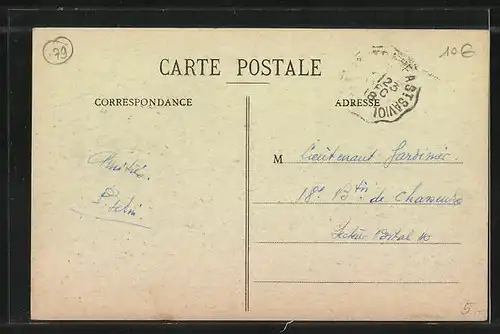 79
10€
CARTE POSTALE
CORRESPONDANCE
ADRESSE
A ST SAVIOL
23
Amitiés.
M Lieutenant Jardinier.
18e Btn de Chasseurs
Secteur Postal 110
5